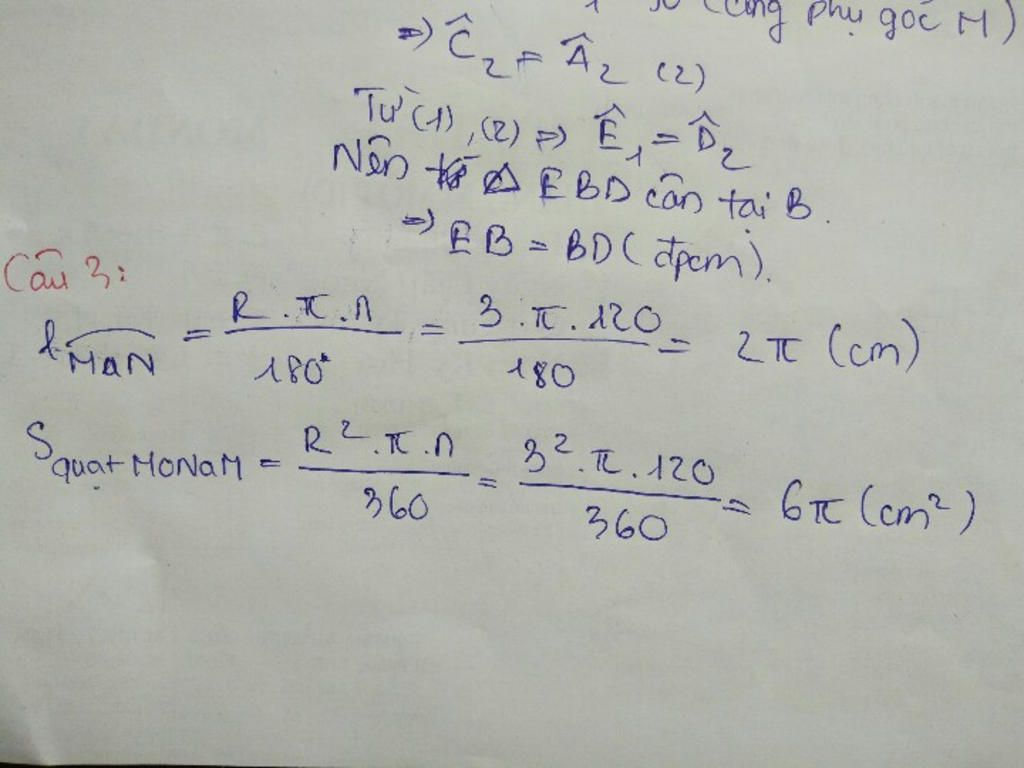 (cùng phụ góc M)
=> Ĉ2 = Â2 (2)
Từ (1), (2) => Ê1 = D̂2
Nên △ EBD cân tại B.
=> EB = BD (đpcm).
Câu 3:
l MaN = R.π.n / 180° = 3.π.120 / 180 = 2π (cm)
S quạt MONaM = R².π.n / 360 = 3².π.120 / 360 = 6π (cm²)